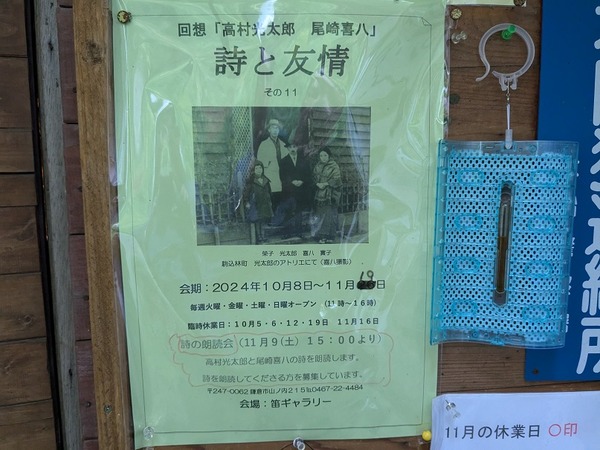 回想「高村光太郎　尾崎喜八」
詩と友情
その11
榮子　光太郎　喜八　實子
駒込林町　光太郎のアトリエにて（喜八撮影）
会期：2024年10月8日～11月19日
毎週火曜・金曜・土曜・日曜オープン　（11時～16時）
臨時休業日：10月5・6・12・19日　11月16日
詩の朗読会（11月9（土）15：00より）
高村光太郎と尾崎喜八の詩を朗読します。
詩を朗読してくださる方を募集しています。
〒247-0062 鎌倉市山ノ内215 ℡0467-22-4484
会場：笛ギャラリー
11月の休業日 〇印